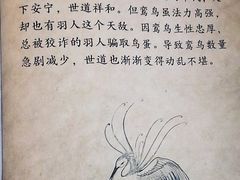 下安宁，世道祥和。但鸾鸟虽法力高强，
却也有羽人这个天敌。因鸾鸟生性忠厚，
总被狡诈的羽人骗取鸟蛋。导致鸾鸟数量
急剧减少，世道也渐渐变得动乱不堪。